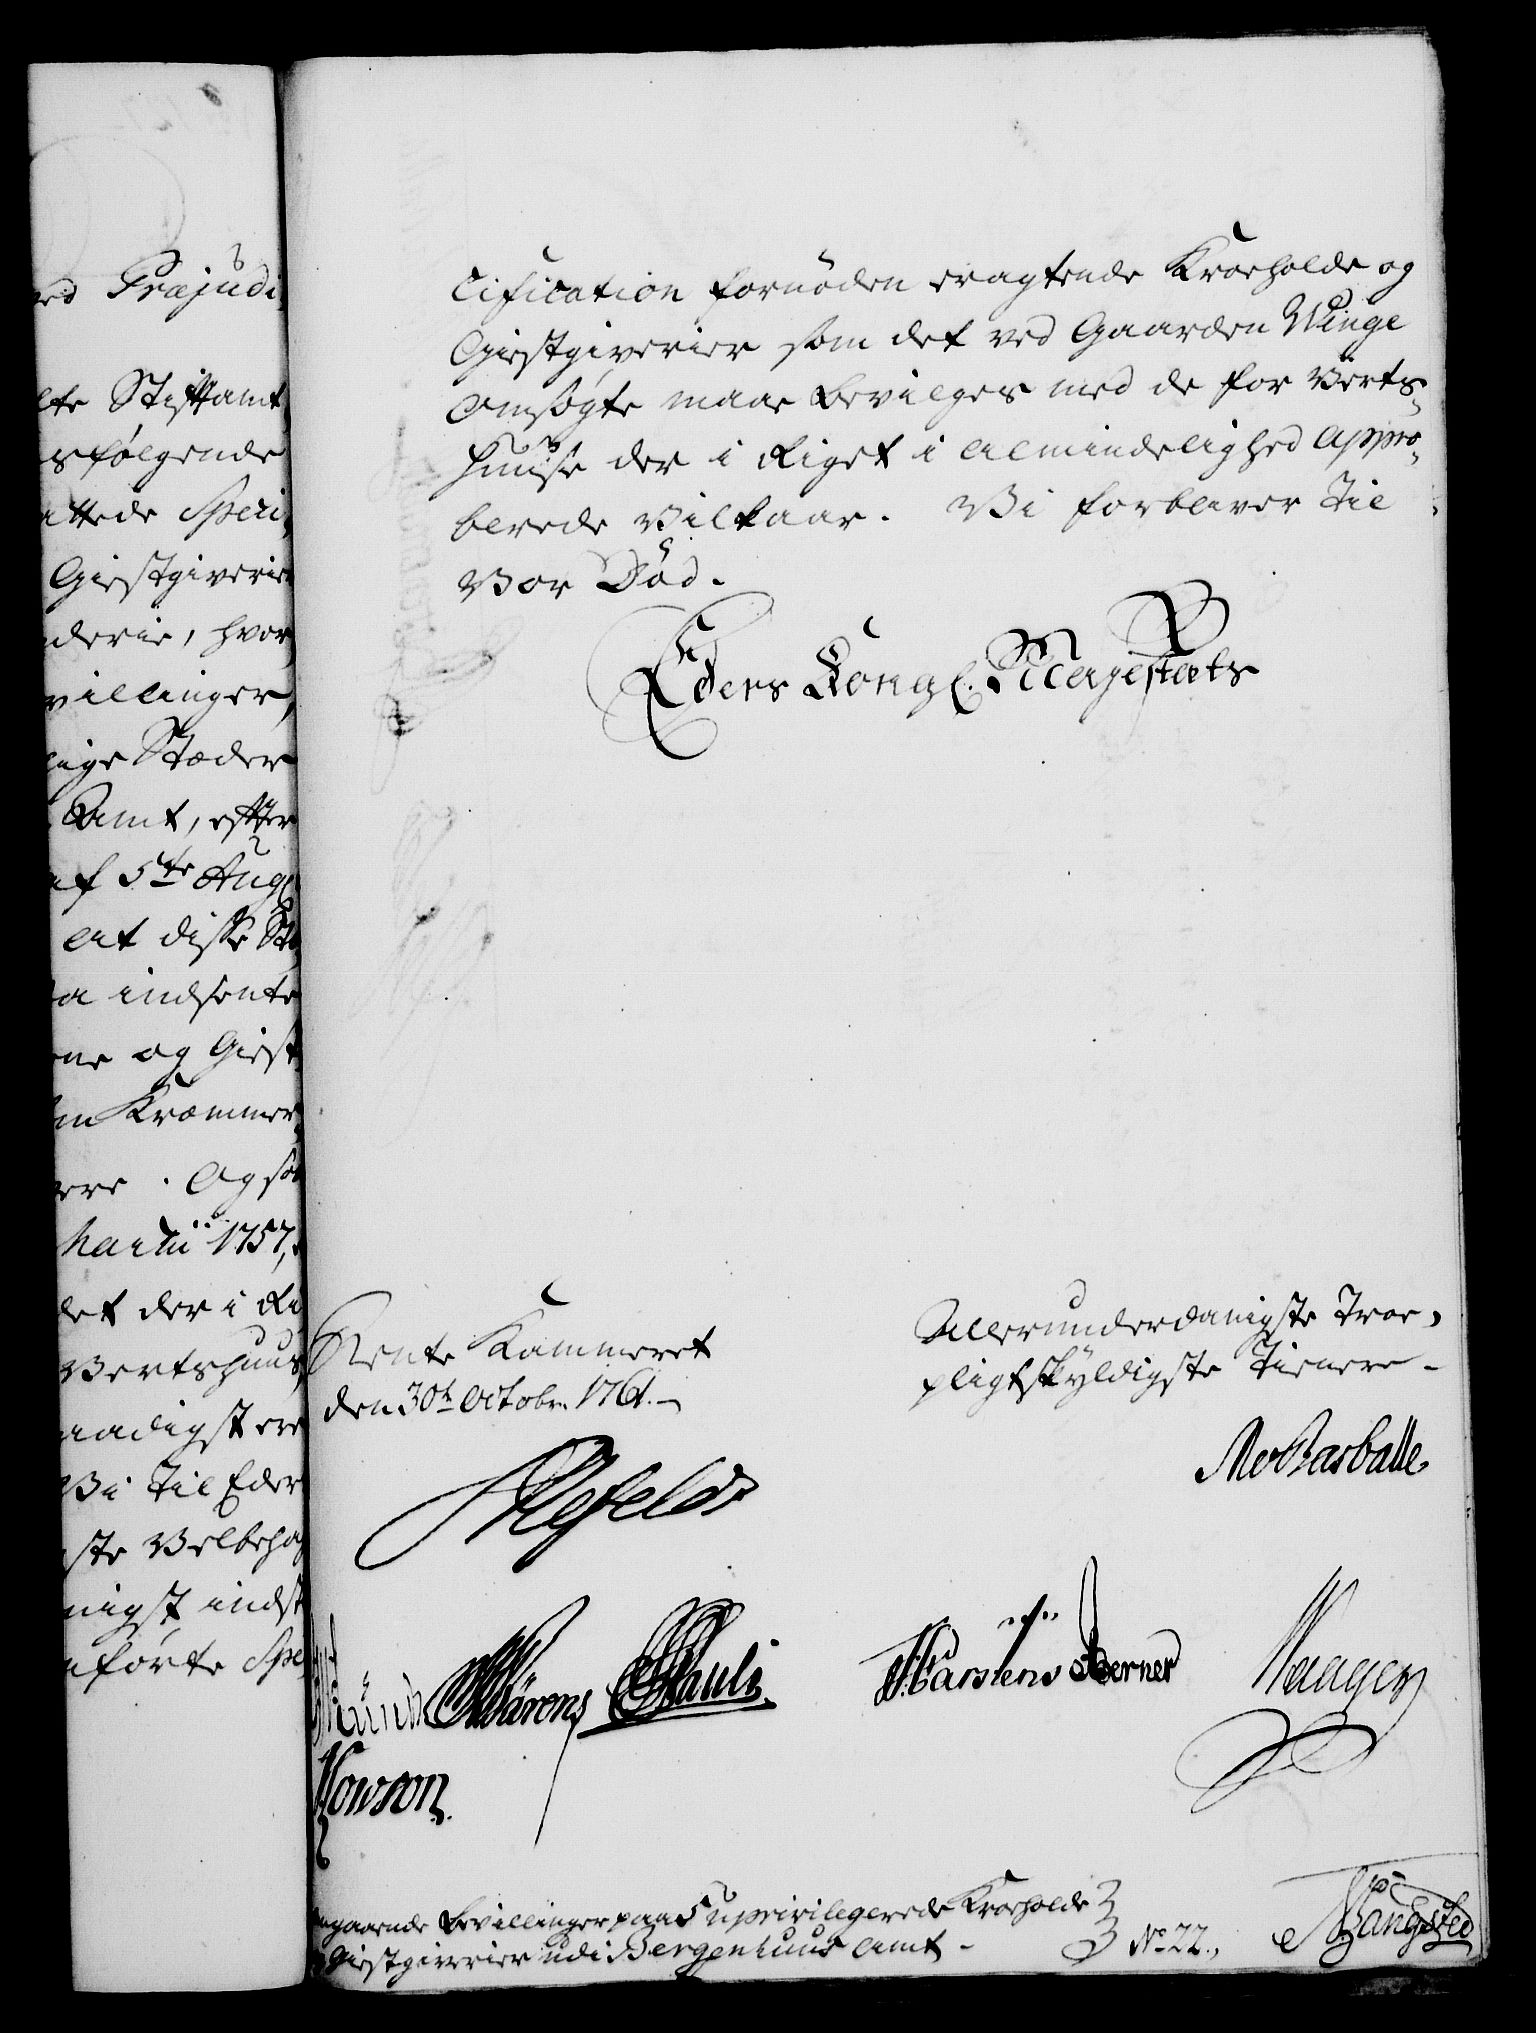 ved Præjudi-
lte Stiftamt
sfølgende
attede Speci-
Giestgiverier
derie, hvor
villinger,
lige Stæder
Amt, efter
af 5te Aug
at disse St
a indsente
ne og Giest
Kræmmer
ere. Og so
Martii 1757,
det der i Ri
Vertshuus
naadigst ere
Vi til Eder
ste Velbehag
nigst indst
førte Spe
cification fornøden eragtende Kroeholde og
Giestgiverier som det ved Gaarden Winge
omsøgte maae bevilges med de for Verts-
huuse der i Riget i Almindelighed appro-
berede Vilkaar. Vi forbliver til
Vor Død.
Eders Kongl. Majestæts
Rente Kammeret
den 30te Octobr. 1761.
Allerunderdanigste Troe-
pligtskyldigste Tienere
Barballe
Alefeldt
Wärens Pauli
Carstens Berner
Waager
Howson
angaaende Bevillinger paa 5 uprivilegerede Kroeholde
Giestgiverier udi Bergenhuus Amt.
No. 22.,
Bangsted